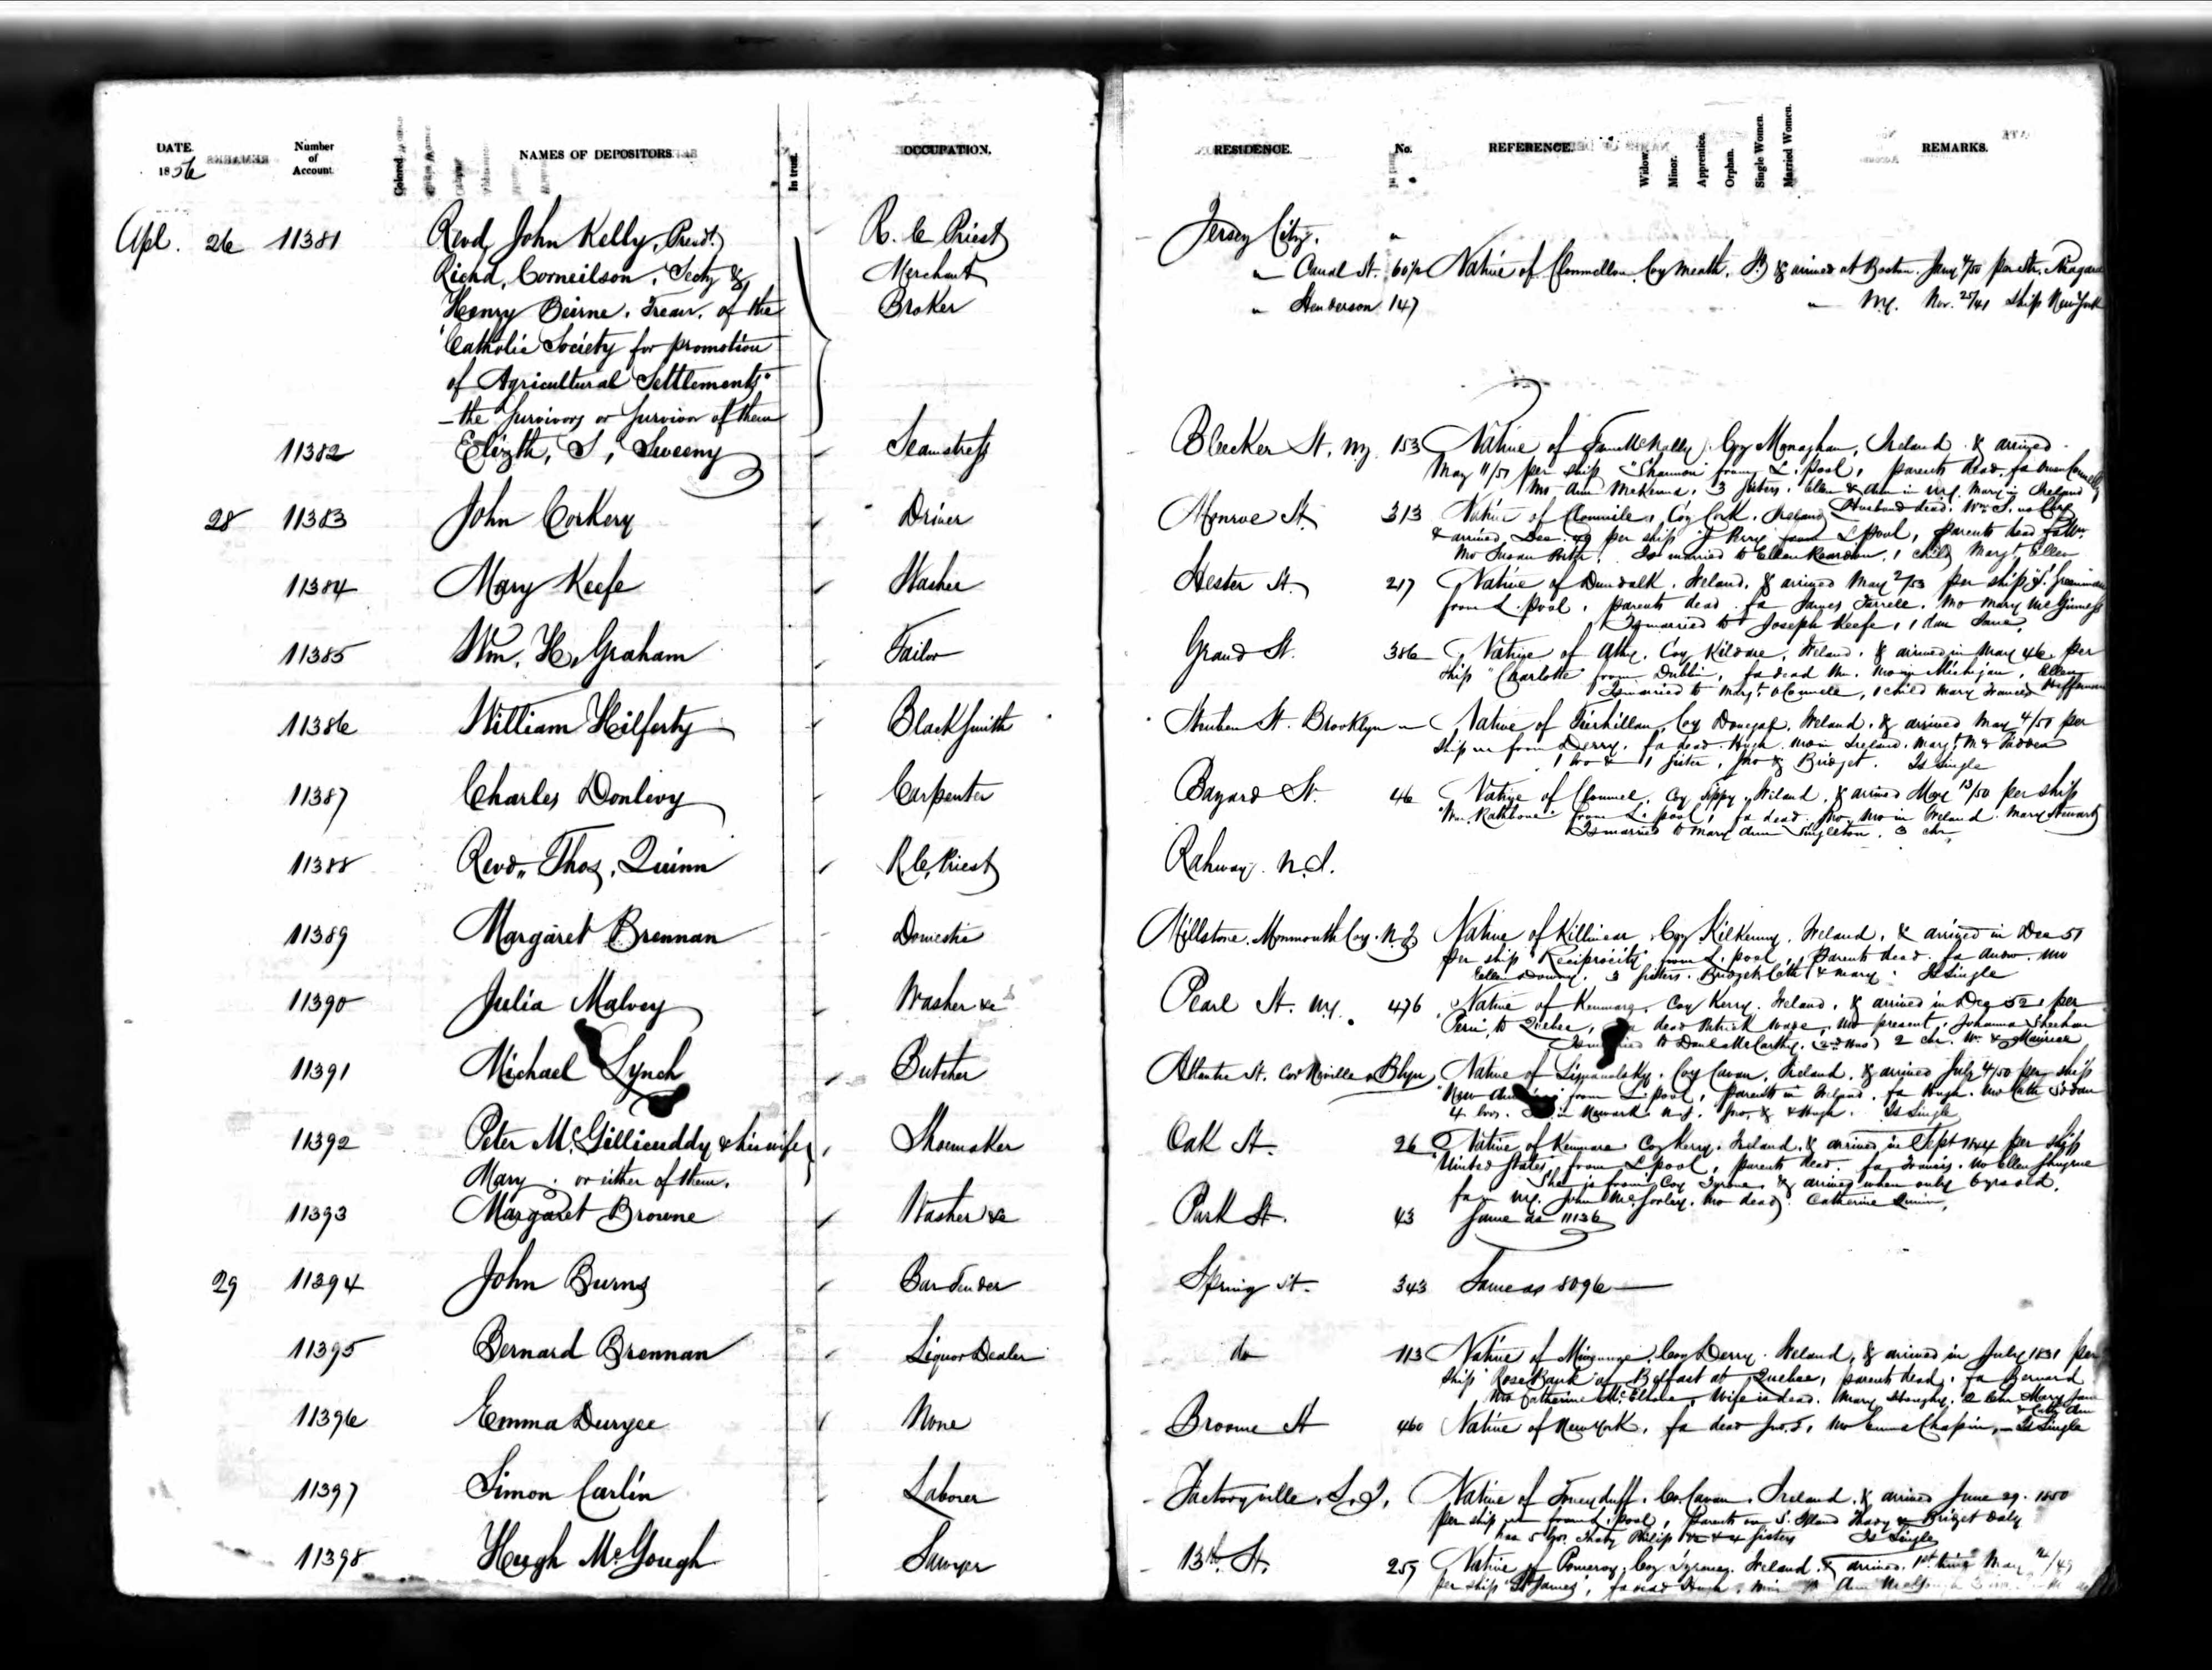 DATE. Number of Account. Colored. NAMES OF DEPOSITORS In trust. OCCUPATION. RESIDENCE. No. REFERENCE. Widow. Minor. Apprentice. Orphan. Single Women. Married Women. REMARKS.
1856
Apl. 26 11381 Revd John Kelly, Presdt. R. C. Priest Jersey City.
Richd. Corneilson, Secty & Merchant " Canal St. 60½ Native of Clonmellon Coy Meath, & arrived at Boston Jany 4/50 per Str. Niagara
Henry Beirne, Treasr. of the Broker " Henderson 147 " N.Y. Nov. 25/41 Ship New York
"Catholic Society for promotion
of Agricultural Settlements"
– the Survivors or Survivor of them
11382 Elizth. S. Sweeny Seamstress Bleecker St. N.Y. 153 Native of Coy Monaghan, Ireland & arrived
May 11/51 per ship "Shannon" from L.pool, parents dead, fa Owen Connelly
Mo Ann McKenna, 3 Sisters, Ellen & Ann in N.Y. Mary in Ireland
Husband dead. Wm. S.
28 11383 John Corkery Driver Monroe St. 313 Native of Coy Cork, Ireland
& arrived Dec. 49 per ship from L.pool, parents dead
Mo Susan Is married to Ellen Reardon, 1 child Margt. Ellen
11384 Mary Keefe Washer Hester St. 217 Native of Dundalk, Ireland, & arrived May 2/53 per ship
from L.pool, parents dead fa James Farrell, Mo Mary McGinness
Is married to Joseph Keefe, 1 dau Jane
11385 Wm. H. Graham Tailor Grand St. 386 Native of Athy, Coy Kildare, Ireland, & arrived in May 46 per
ship "Charlotte" from Dublin, fa dead Wm. Mo in Michigan, Ellen Heffernan
Is married to Margt. OConnell, 1 child Mary Frances
11386 William Hilferty Blacksmith Steuben St. Brooklyn Native of Coy Donegal, Ireland, & arrived May 4/51 per
ship from Derry, fa dead Hugh, mo in Ireland, Margt. McFadden
1 bro & 1 sister, Jno & Bridget. Is Single
11387 Charles Donlevy Carpenter Bayard St. 46 Native of Clonmel, Coy Tippy, Ireland, & arrived May 13/50 per ship
"Wm. Rathbone" from L.pool, fa dead Jno, mo in Ireland, Mary Stewart
Is married to Mary Ann Singleton. 3 chr.
11388 Revd. Thos. Quinn R.C. Priest Rahway N.J.
11389 Margaret Brennan Domestic Millstone, Monmouth Coy. N.J. Native of Coy Kilkenny, Ireland, & arrived in Dec 51
per ship "Reciprocity" from L.pool, parents dead fa Andw. mo
Ellen Downy, 3 sisters, Bridget Cath & Mary. Is Single
11390 Julia Malvey Washer &c Pearl St. N.Y. 476 Native of Kenmare, Coy Kerry, Ireland, & arrived in Dec 52 per
"Peru" to Quebec, dead Patrick Wade, mo present, Johanna Sheehan
to Danl McCarthy, (2nd Hus) 2 chr. Wm & Maurice
11391 Michael Lynch Butcher Atlantic St. Cor Neville Bklyn Native of Coy Cavan, Ireland, & arrived July 4/50 per ship
from L.pool, parents in Ireland, fa Hugh, mo Cath
4 bros. in Newark N.J. Jno. & Hugh. Is Single
11392 Peter McGillicuddy & his wife Shoemaker Oak St. 26 Native of Kenmare Coy Kerry, Ireland, & arrived in Sept 1844 per ship
Mary or either of them. "United States" from L.pool, parents dead. fa Francis, mo Ellen
She is from Coy Tyrone, & arrived when only 6 yrs old,
fa in N.Y. John McSorley, mo dead Catherine Quinn.
11393 Margaret Browne Washer &c Park St. 43 Same as 11136
29 11394 John Burns Bartender Spring St. 343 Same as 8096
11395 Bernard Brennan Liquor Dealer do 113 Native of Coy Derry, Ireland, & arrived in July 1831 per
ship "Rose Bank" of Belfast at Quebec, parents dead, fa Bernard
mo Catherine McElhone, Wife is dead, Mary 2 Chn Mary Jane
& Cathe Ann
11396 Emma Duryee None Broome St 460 Native of New York, fa dead Jno. S., mo Emma Chapin, – Is Single
11397 Simon Carlin Laborer Factoryville, S.I. Native of Co. Cavan, Ireland & arrived June 29. 1850
per ship from L.pool, parents on S. Island & Bridget Daly
has 5 bros. Philip & 4 sisters Is Single
11398 Hugh McGough Sawyer 13th St. 257 Native of Pomeroy, Coy Tyrone, Ireland, & arrived 1st time May /49
per ship "St James", fa dead Hugh, Ann